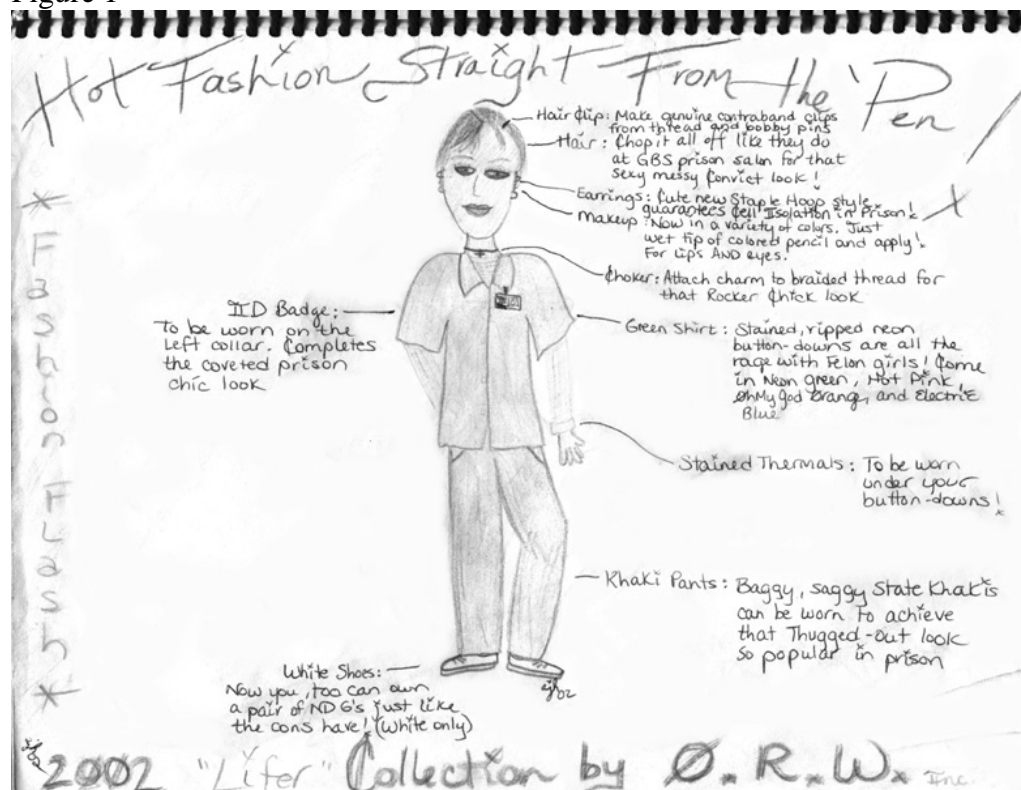 Figure 1
Hot Fashion Straight From the 'Pen!
* Fashion Flash *
Hair Clip: Make genuine contraband clips
from thread and bobby pins
Hair: Chop it all off like they do
at GBS prison salon for that
sexy messy Convict look!
Earrings: Cute new Staple Hoop style
guarantees Cell Isolation in Prison!
Makeup: Now in a variety of colors. Just
wet tip of colored pencil and apply!
For Lips AND eyes.
Choker: Attach charm to braided thread for
that Rocker Chick look
ID Badge:
To be worn on the
Left collar. Completes
the coveted prison
chic look
Green Shirt: Stained, ripped neon
button-downs are all the
rage with Felon girls! Come
in Neon green, Hot Pink,
OhMy God Orange, and Electric
Blue
Stained Thermals: To be worn
under your
button-downs!
Khaki Pants: Baggy, saggy State Khakis
can be worn to achieve
that Thugged-out look
so popular in prison
White Shoes:
Now you, too can own
a pair of ND G's just like
the cons have! (White only)
2002 "Lifer" Collection by Ø.R.W. Inc.